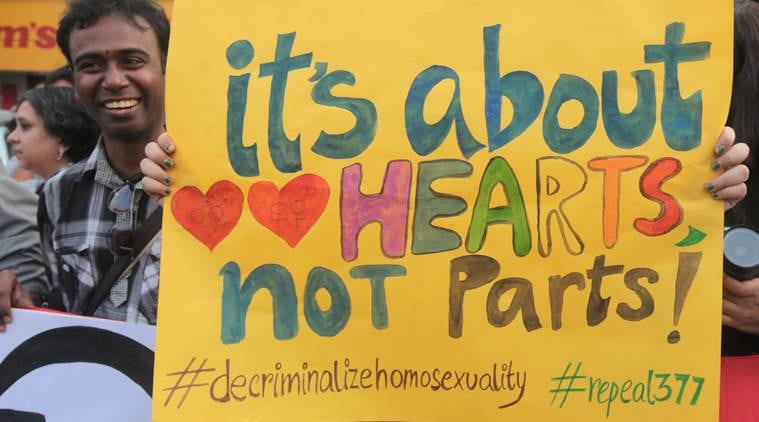 m's
it's about
HEARTS,
not Parts!
#decriminalizehomosexuality #repeal377